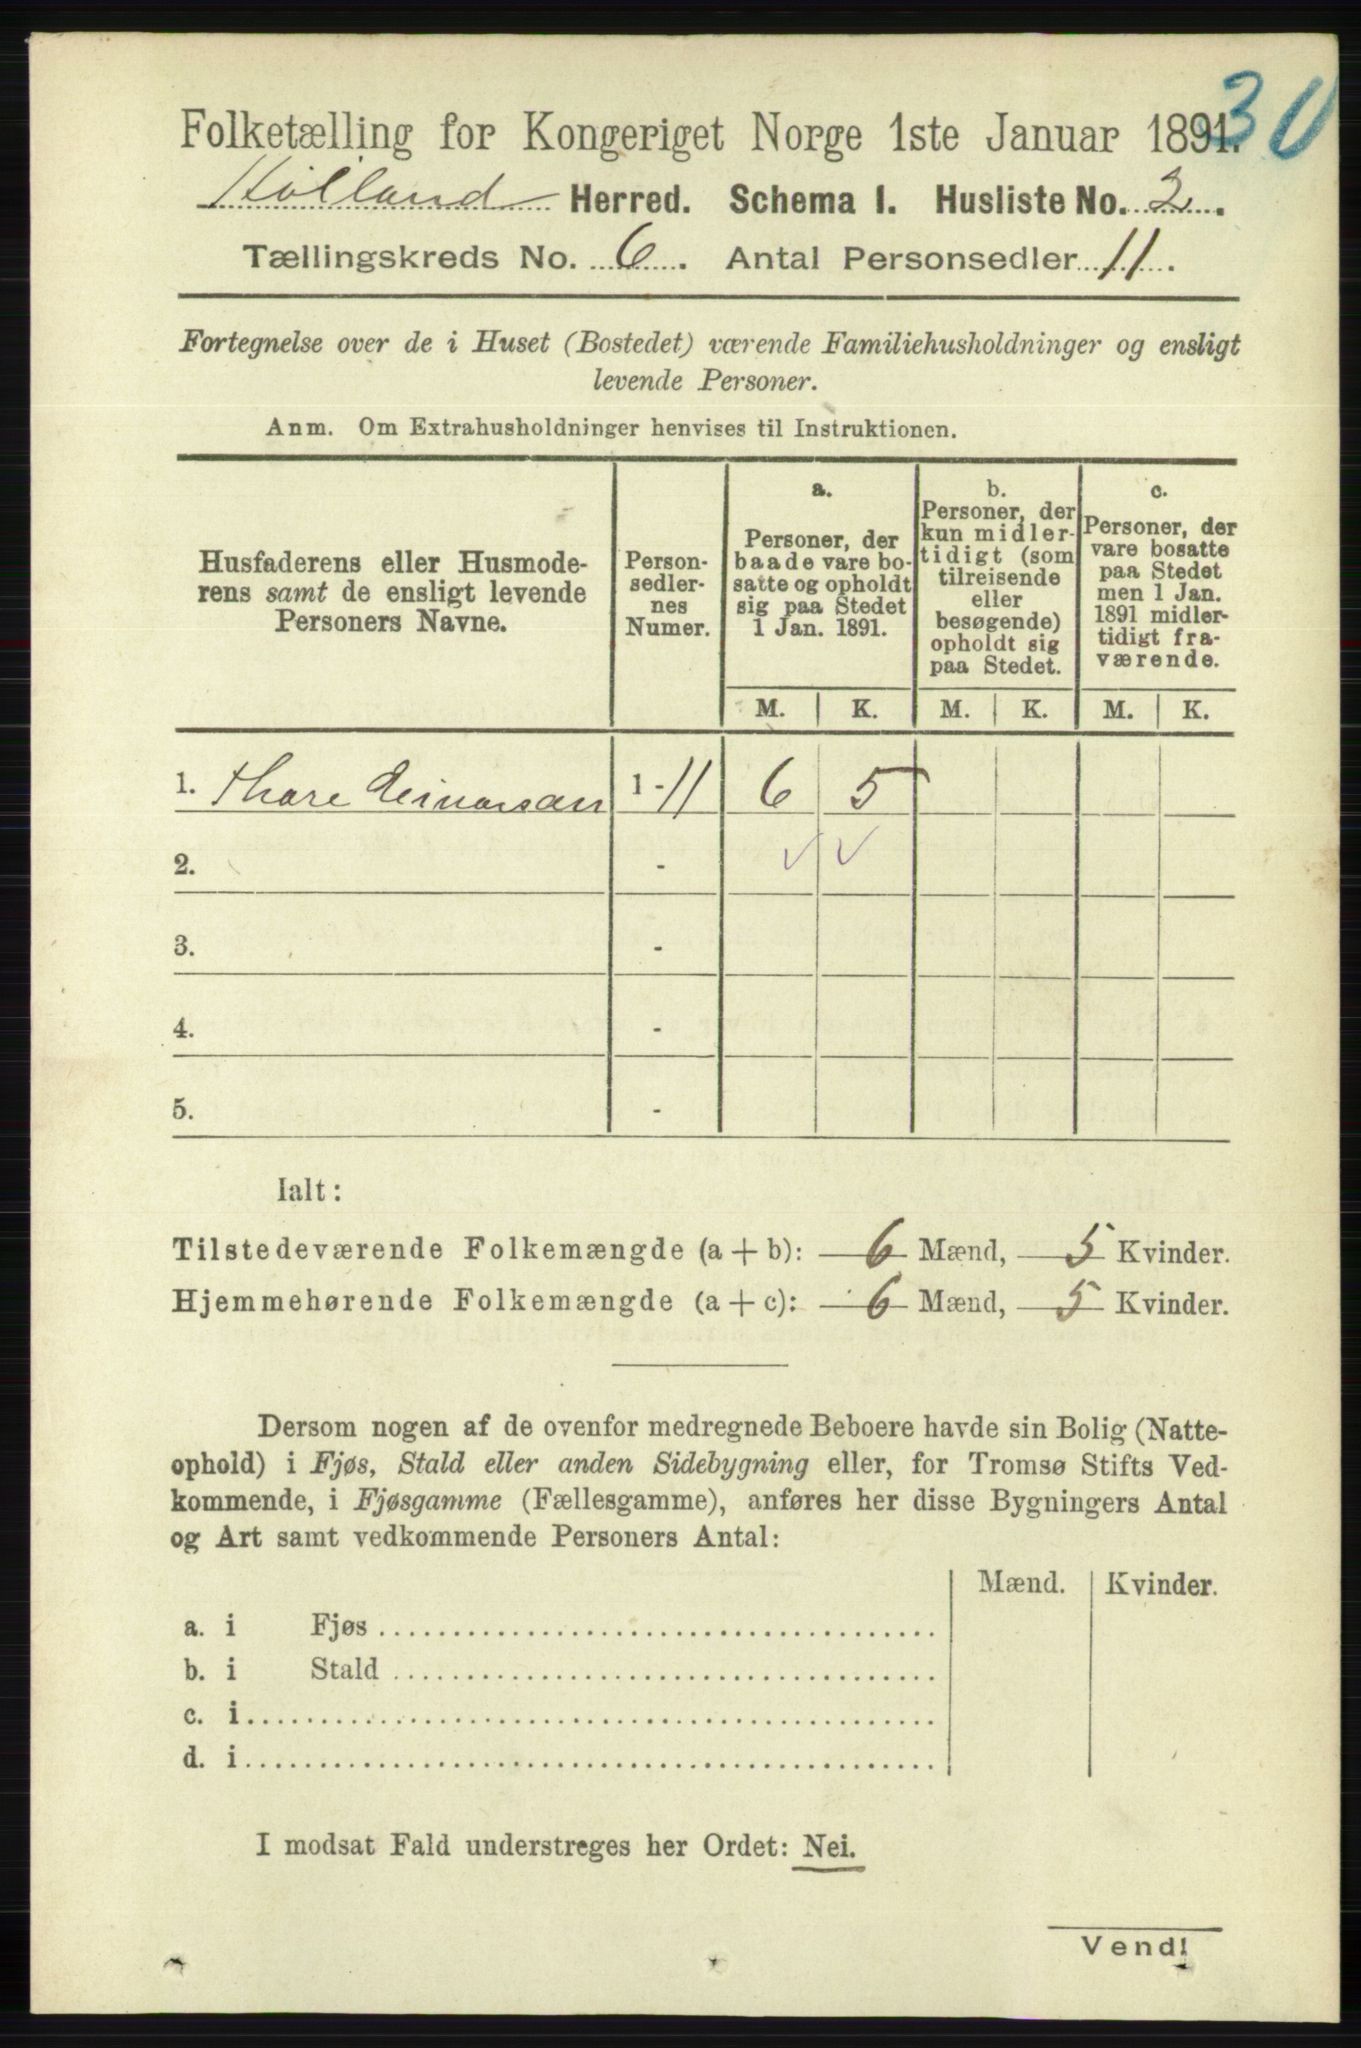 30
Folketælling for Kongeriget Norge 1ste Januar 1891.
Holland Herred. Schema I. Husliste No. 2.
Tællingskreds No. 6. Antal Personsedler 11.
Fortegnelse over de i Huset (Bostedet) værende Familiehusholdninger og ensligt
levende Personer.
Anm. Om Extrahusholdninger henvises til Instruktionen.
Husfaderens eller Husmode-
rens samt de ensligt levende
Personers Navne.
Person-
sedler-
nes
Numer.
a.
Personer, der
baade vare bo-
satte og opholdt
sig paa Stedet
1 Jan. 1891.
b.
Personer, der
kun midler-
tidigt (som
tilreisende
eller
besøgende)
opholdt sig
paa Stedet.
c.
Personer, der
vare bosatte
paa Stedet
men 1 Jan.
1891 midler-
tidigt fra-
værende.
M. K. M. K. M. K.
1. Thore Einarsan 1 - 11 6 5
2. -
3. -
4. -
5. -
Ialt:
Tilstedeværende Folkemængde (a + b): 6 Mænd, 5 Kvinder.
Hjemmehørende Folkemængde (a + c): 6 Mænd, 5 Kvinder.
Dersom nogen af de ovenfor medregnede Beboere havde sin Bolig (Natte-
ophold) i Fjøs, Stald eller anden Sidebygning eller, for Tromsø Stifts Ved-
kommende, i Fjøsgamme (Fællesgamme), anføres her disse Bygningers Antal
og Art samt vedkommende Personers Antal:
Mænd. Kvinder.
a. i Fjøs
b. i Stald
c. i
d. i
I modsat Fald understreges her Ordet: Nei.
Vend!